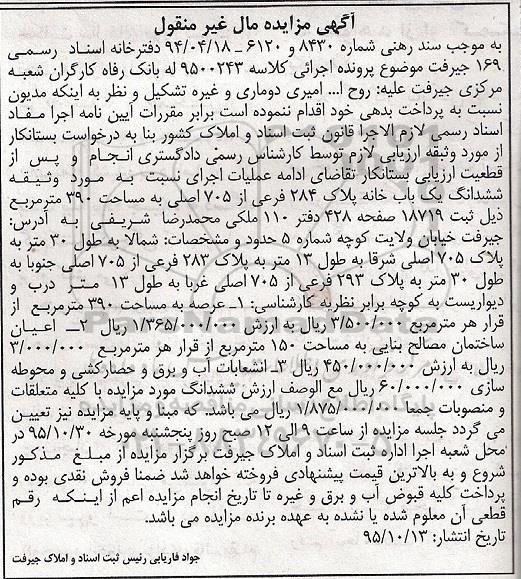 آگهی مزایده مال غیر منقول
به موجب سند رهنی شماره ۸۴۳۰ و ۶۱۲۰ ـ ۹۴/۰۴/۱۸ دفترخانه اسناد رسمی
۱۶۹ جیرفت موضوع پرونده اجرائی کلاسه ۹۵۰۰۲۴۳ له بانک رفاه کارگران شعبه
مرکزی جیرفت علیه: روح ا... امیری دوماری و غیره تشکیل و نظر به اینکه مدیون
نسبت به پرداخت بدهی خود اقدام ننموده است برابر مقررات آیین نامه اجرا مفاد
اسناد رسمی لازم الاجرا قانون ثبت اسناد و املاک کشور بنا به درخواست بستانکار
از مورد وثیقه ارزیابی لازم توسط کارشناس رسمی دادگستری انجام و پس از
قطعیت ارزیابی بستانکار تقاضای ادامه عملیات اجرای نسبت به مورد وثیقه
ششدانگ یک باب خانه پلاک ۲۸۴ فرعی از ۷۰۵ اصلی به مساحت ۳۹۰ مترمربع
ذیل ثبت ۱۸۷۱۹ صفحه ۴۲۸ دفتر ۱۱۰ ملکی محمدرضا شریفی به آدرس:
جیرفت خیابان ولایت کوچه شماره ۵ حدود و مشخصات: شمالا به طول ۳۰ متر به
پلاک ۷۰۵ اصلی شرقا به طول ۱۳ متر به پلاک ۲۸۳ فرعی از ۷۰۵ اصلی جنوبا به
طول ۳۰ متر به پلاک ۲۹۳ فرعی از ۷۰۵ اصلی غربا به طول ۱۳ متر درب و
دیواریست به کوچه برابر نظریه کارشناسی: ۱ـ عرصه به مساحت ۳۹۰ مترمربع از
قرار هر مترمربع ۳/۵۰۰/۰۰۰ ریال به ارزش ۱/۳۶۵/۰۰۰/۰۰۰ ریال ۲ـ اعیان
ساختمان مصالح بنایی به مساحت ۱۵۰ مترمربع از قرار هر مترمربع ۳/۰۰۰/۰۰۰
ریال به ارزش ۴۵۰/۰۰۰/۰۰۰ ریال ۳ـ انشعابات آب و برق و حصارکشی و محوطه
سازی ۶۰/۰۰۰/۰۰۰ ریال مع الوصف ارزش ششدانگ مورد مزایده با کلیه متعلقات
و منصوبات جمعا ۱/۸۷۵/۰۰۰/۰۰۰ ریال می باشد. که مبنا و پایه مزایده نیز تعیین
می گردد جلسه مزایده از ساعت ۹ الی ۱۲ صبح روز پنجشنبه مورخه ۹۵/۱۰/۳۰ در
محل شعبه اجرا اداره ثبت اسناد و املاک جیرفت برگزار مزایده از مبلغ مذکور
شروع و به بالاترین قیمت پیشنهادی فروخته خواهد شد ضمنا فروش نقدی بوده و
پرداخت کلیه قبوض آب و برق و غیره تا تاریخ انجام مزایده اعم از اینکه رقم
قطعی آن معلوم شده یا نشده به عهده برنده مزایده می باشد.
تاریخ انتشار: ۹۵/۱۰/۱۳
جواد فاریابی رئیس ثبت اسناد و املاک جیرفت